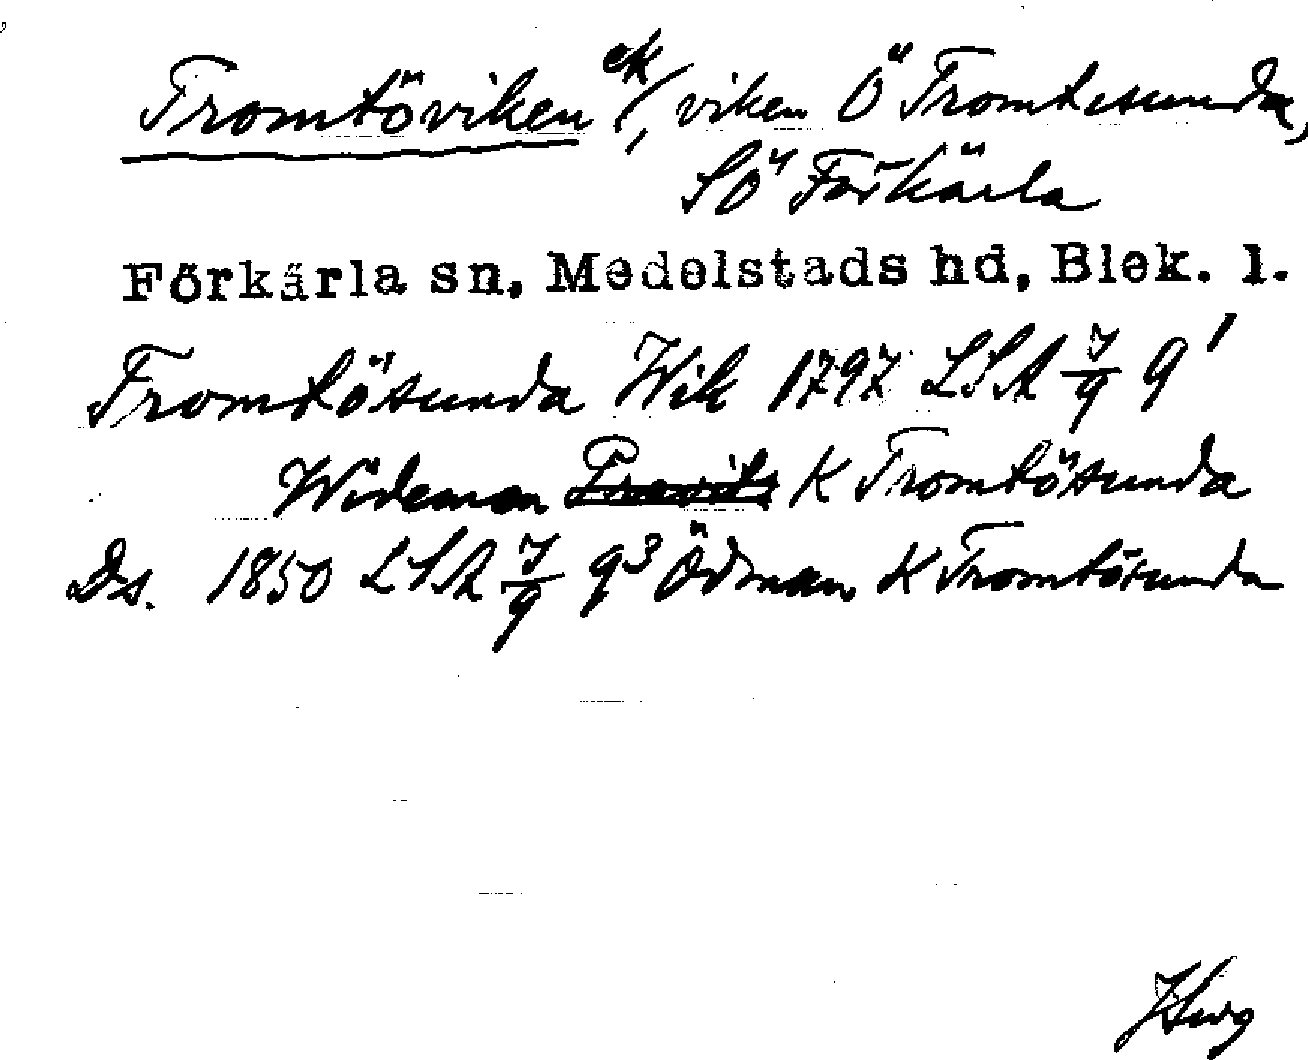 Fromtöviken ek/, viken Ö Fromtesunda,
SÖ Förkärla
Förkärla sn, Medelstads hd, Blek. l.
Fromtösunda Wik 1797 LSA 7/9 9¹
Wideman K Fromtösunda
Ds. 1850 LSA 7/9 9³ Ödman K Fromtösunda